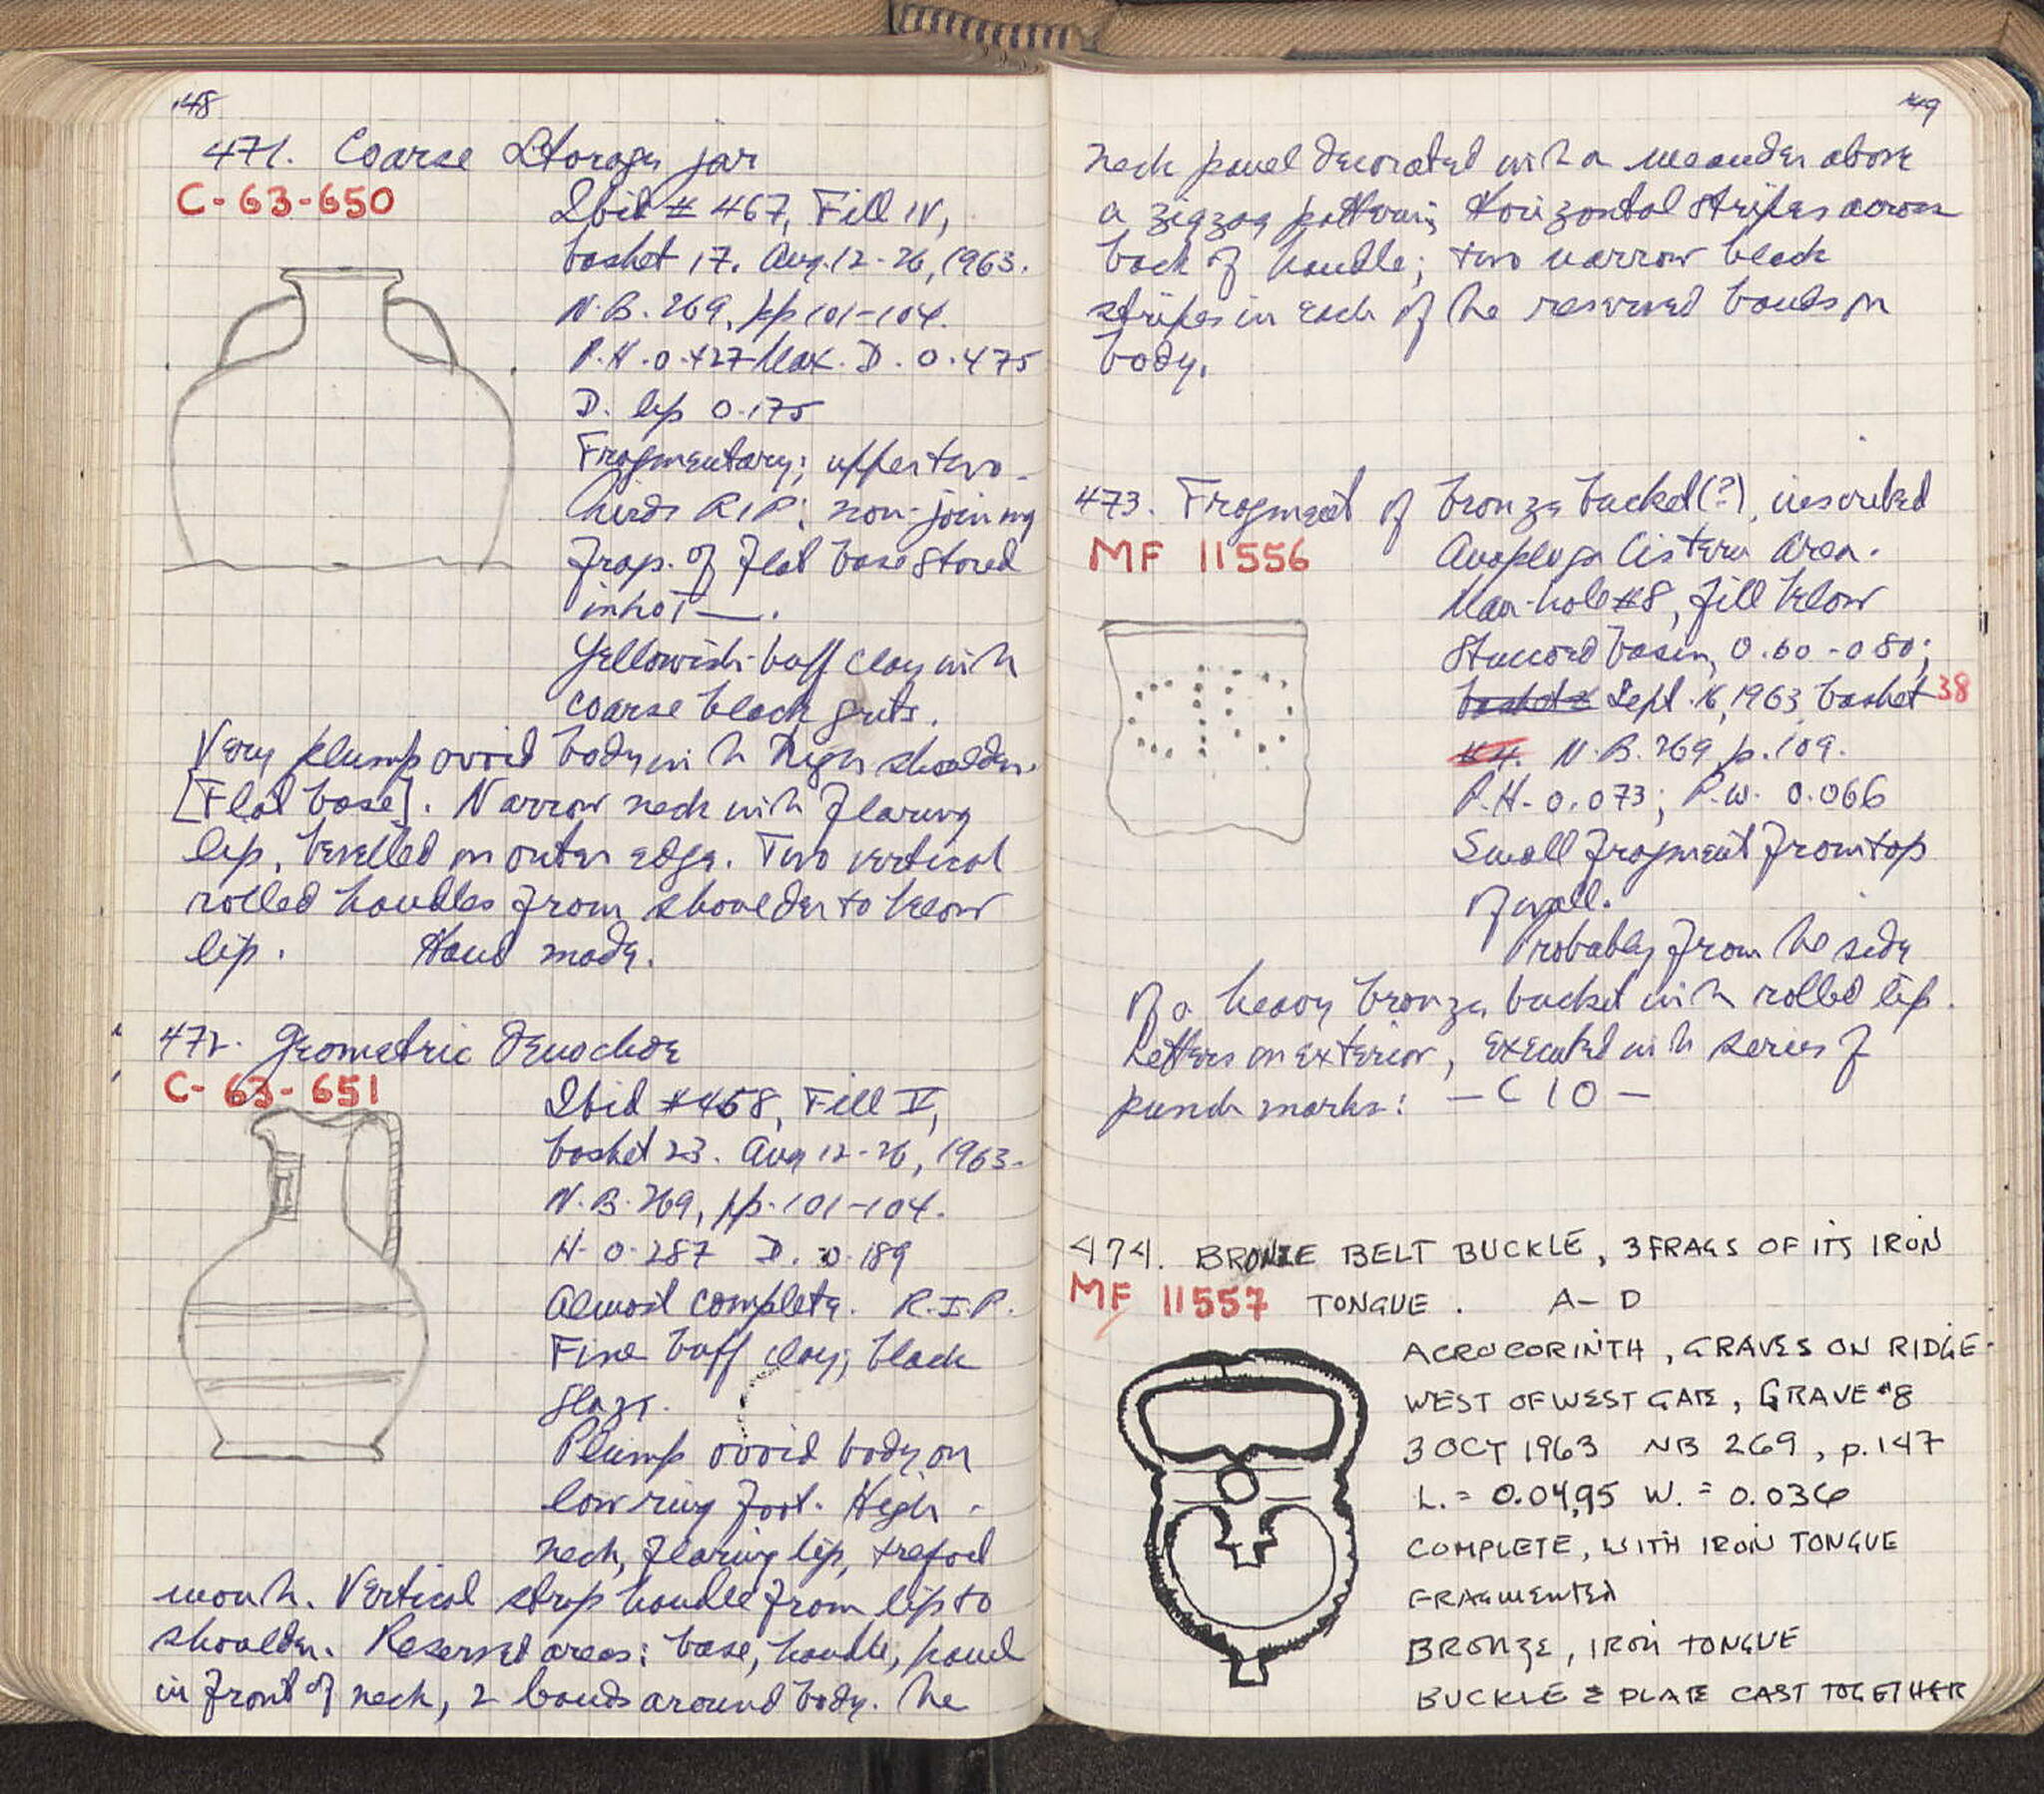 148
471. Coarse Storage jar
C-63-650
Ibid # 467, Fill IV,
basket 17. Aug. 12-26, 1963.
N.B. 269, pp 101-104.
P.H. 0.427 Max. D. 0.475
D. lip 0.175
Fragmentary; upper two-
thirds R.I.P.; non-joining
frag. of flat base stored
in lot —.
Yellowish-buff clay with
coarse black grits.
Very plump ovoid body with high shoulder.
[Flat base]. Narrow neck with flaring
lip, bevelled on outer edge. Two vertical
rolled handles from shoulder to below
lip. Hand made.
472. Geometric Oenochoe
C-63-651
Ibid #468, Fill V,
basket 23. Aug 12-26, 1963.
N.B. 269, pp. 101-104.
H. 0.287 D. 0.189
Almost complete. R.I.P.
Fine buff clay; black
glaze.
Plump ovoid body on
low ring foot. High
neck, flaring lip, trefoil
mouth. Vertical strap handle from lip to
shoulder. Reserved areas: base, handle, panel
in front of neck, 2 bands around body. The
149
neck panel decorated with a meander above
a zigzag pattern; Horizontal stripes across
back of handle; two narrow black
stripes in each of the reserved bands on
body.
473. Fragment of bronze bucket(?), inscribed
MF 11556
Anaploga Cistern Area.
Man-hole #8, fill below
Stuccoed basin, 0.60-0.80;
Sept. 16, 1963 basket 38
#4. N.B. 269 p. 109.
P.H. 0.073; P.W. 0.066
Small fragment from top
of wall.
Probably from the side
of a heavy bronze bucket with rolled lip.
Letters on exterior, executed with series of
punch marks: — C I O —
474. BRONZE BELT BUCKLE, 3 FRAGS OF ITS IRON
MF 11557 TONGUE. A-D
ACROCORINTH, GRAVES ON RIDGE-
WEST OF WEST GATE, GRAVE #8
3 OCT 1963 NB 269, p. 147
L. = 0.0495 W. = 0.036
COMPLETE, WITH IRON TONGUE
FRAGMENTED
BRONZE, IRON TONGUE
BUCKLE & PLATE CAST TOGETHER